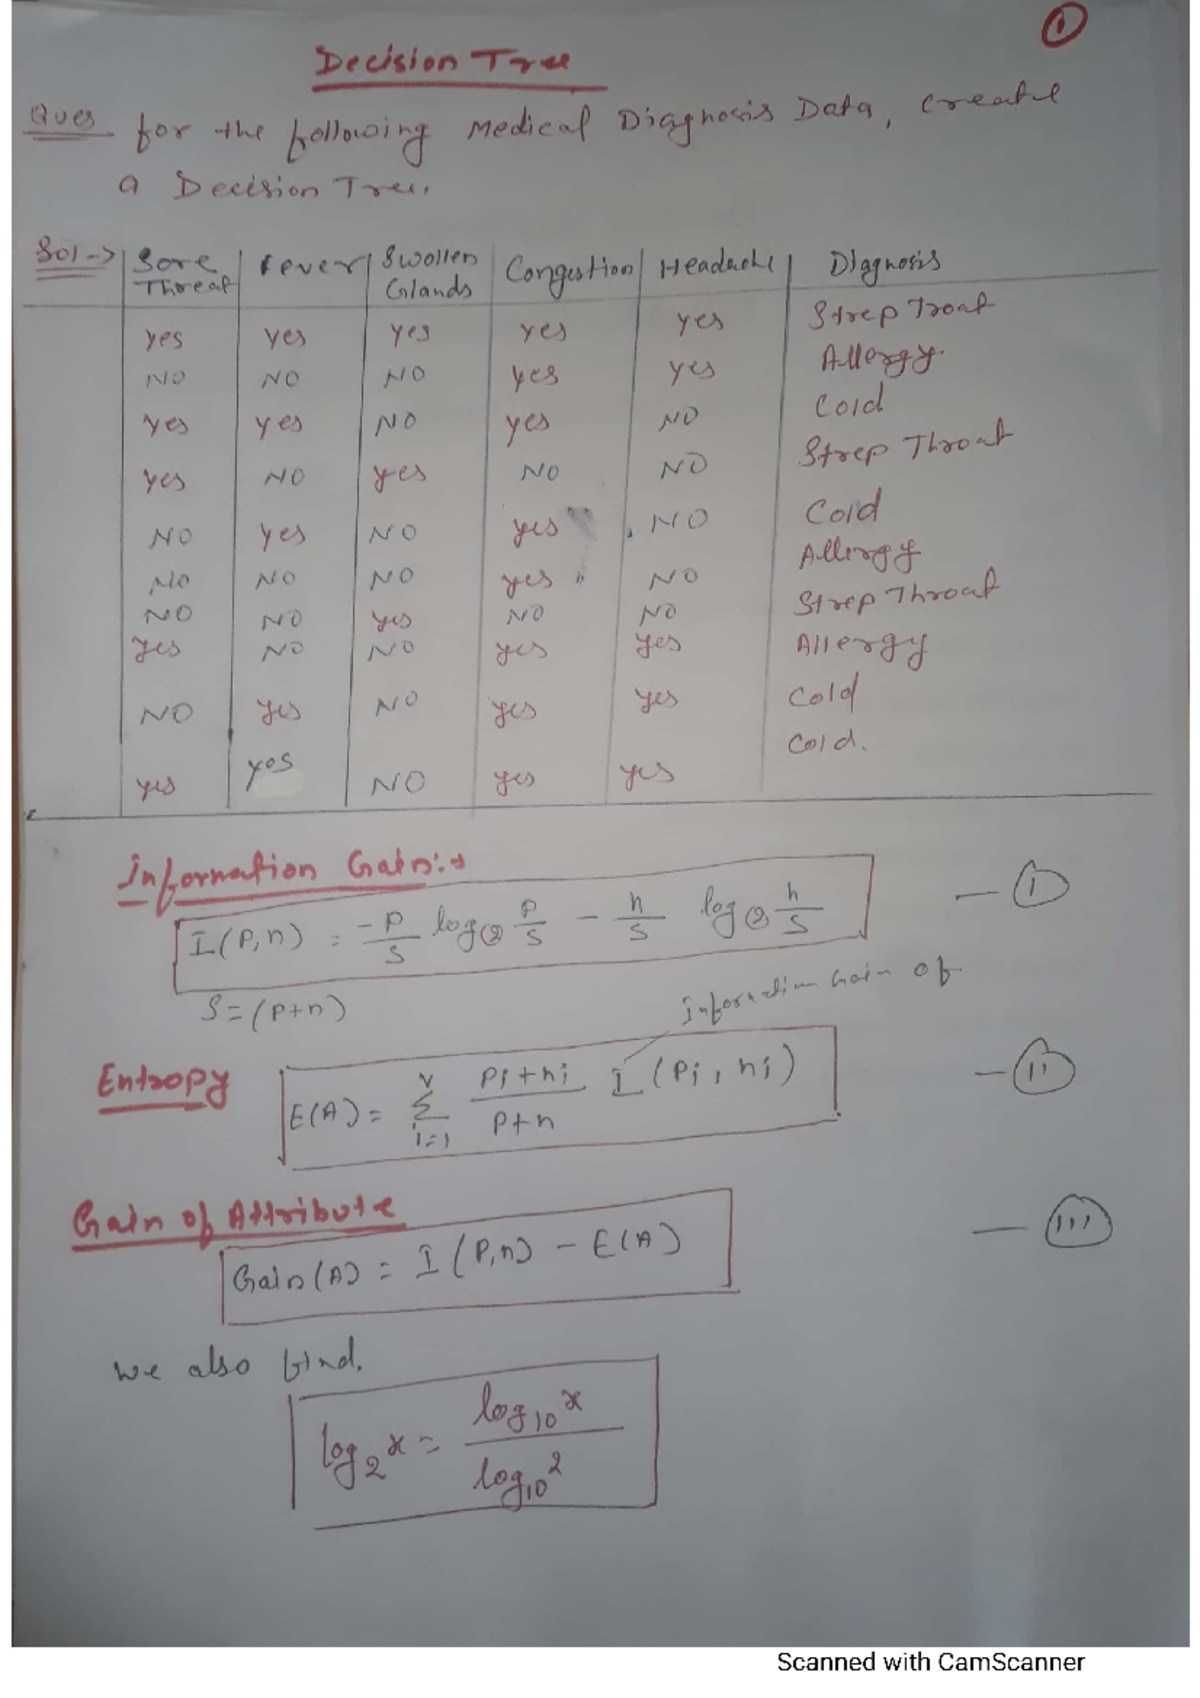 1
Decision Tree
Ques for the following Medical Diagnosis Data, create
a Decision Tree.
Sol -> Sore Threat | Fever | Swollen Glands | Congestion | Headache | Diagnosis
yes yes yes yes yes Strep Troat
NO NO NO yes yes Allergy.
yes yes NO yes NO Cold
yes NO yes NO NO Strep Throat
NO yes NO yes NO Cold
NO NO NO yes NO Allergy
NO NO yes NO NO Strep Throat
yes NO NO yes yes Allergy
NO yes NO yes yes Cold
yes yes NO yes yes Cold.
Information Gain:
I(P,n) = -P/S log2 P/S - n/S log2 n/S — (i)
S = (P+n)
Information Gain of
Entropy E(A) = Σ i=1 v Pi+ni / P+n I (Pi, ni) — (ii)
Gain of Attribute
Gain(A) = I (P,n) - E(A) — (iii)
we also find.
log2 x = log10 x / log10 2
Scanned with CamScanner